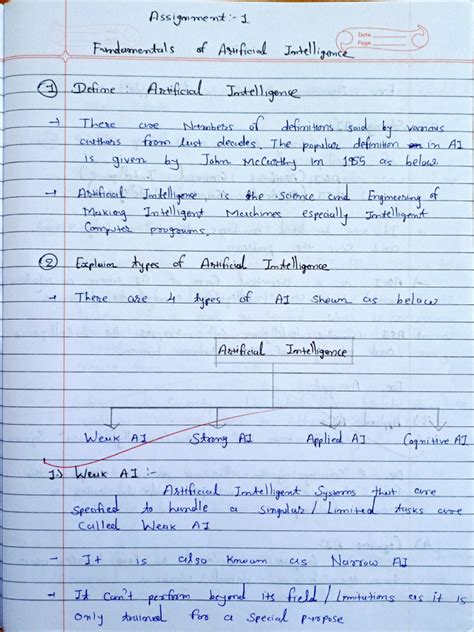 Assignment:- 1
Date
Page
Fundamentals of Artificial Intelligence
1 Define : Artificial Intelligence
→ There are Numbers of definitions said by various
authors from last decades. The popular definition in AI
is given by John McCarthy in 1955 as below
→ Artificial Intelligence, is the science and Engineering of
Making Intelligent Machines especially Intelligent
Computer programs.
2 Explain types of Artificial Intelligence
→ There are 4 types of AI shown as below
Artificial Intelligence
Weak AI Strong AI Applied AI Cognitive AI
1.) Weak AI :-
Artificial Intelligent Systems that are
specified to handle a singular / Limited tasks are
Called Weak AI
→ It is also known as Narrow AI
→ It can't perform beyond its field / Limitations as it is
only trained for a special purpose